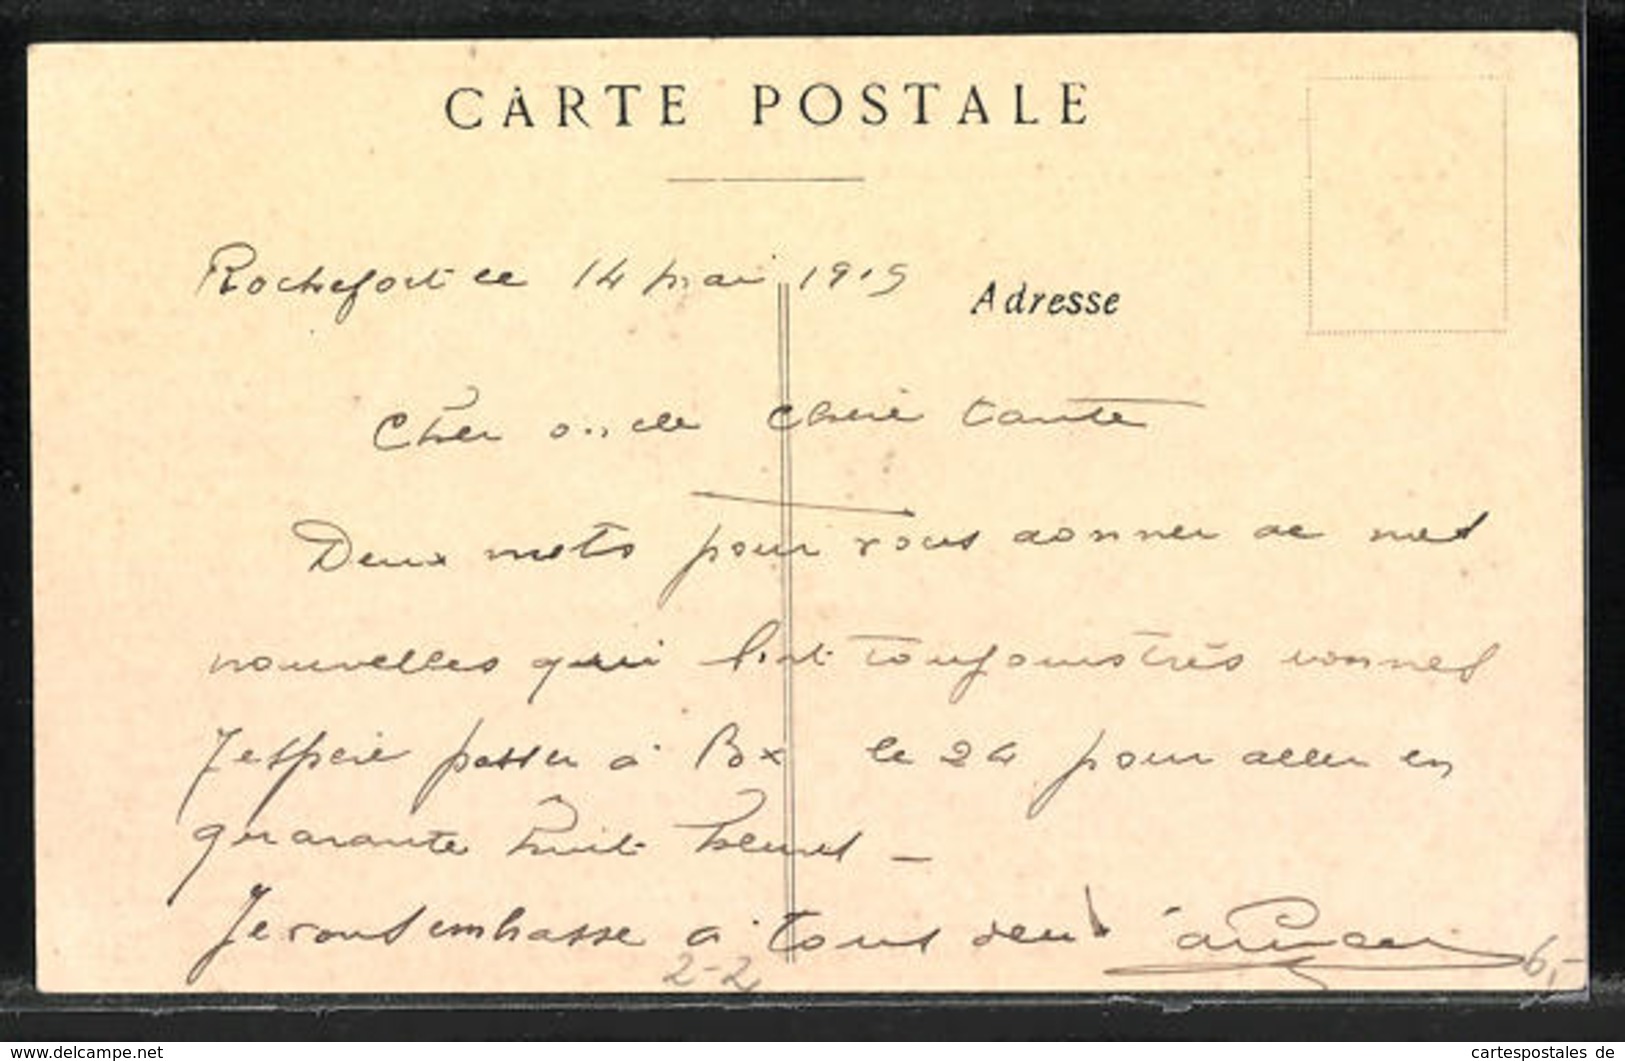 CARTE POSTALE
Rochefort le 14 mai 1915
Adresse
Cher oncle chere tante
Deux mots pour vous donner de mes
nouvelles qui sont toujours très bonnes
J'espere passer à Bx le 24 pour aller en
quarante huit heures -
Je vous embrasse à tous deux
2-2
6,-
www.delcampe.net
cartespostales de